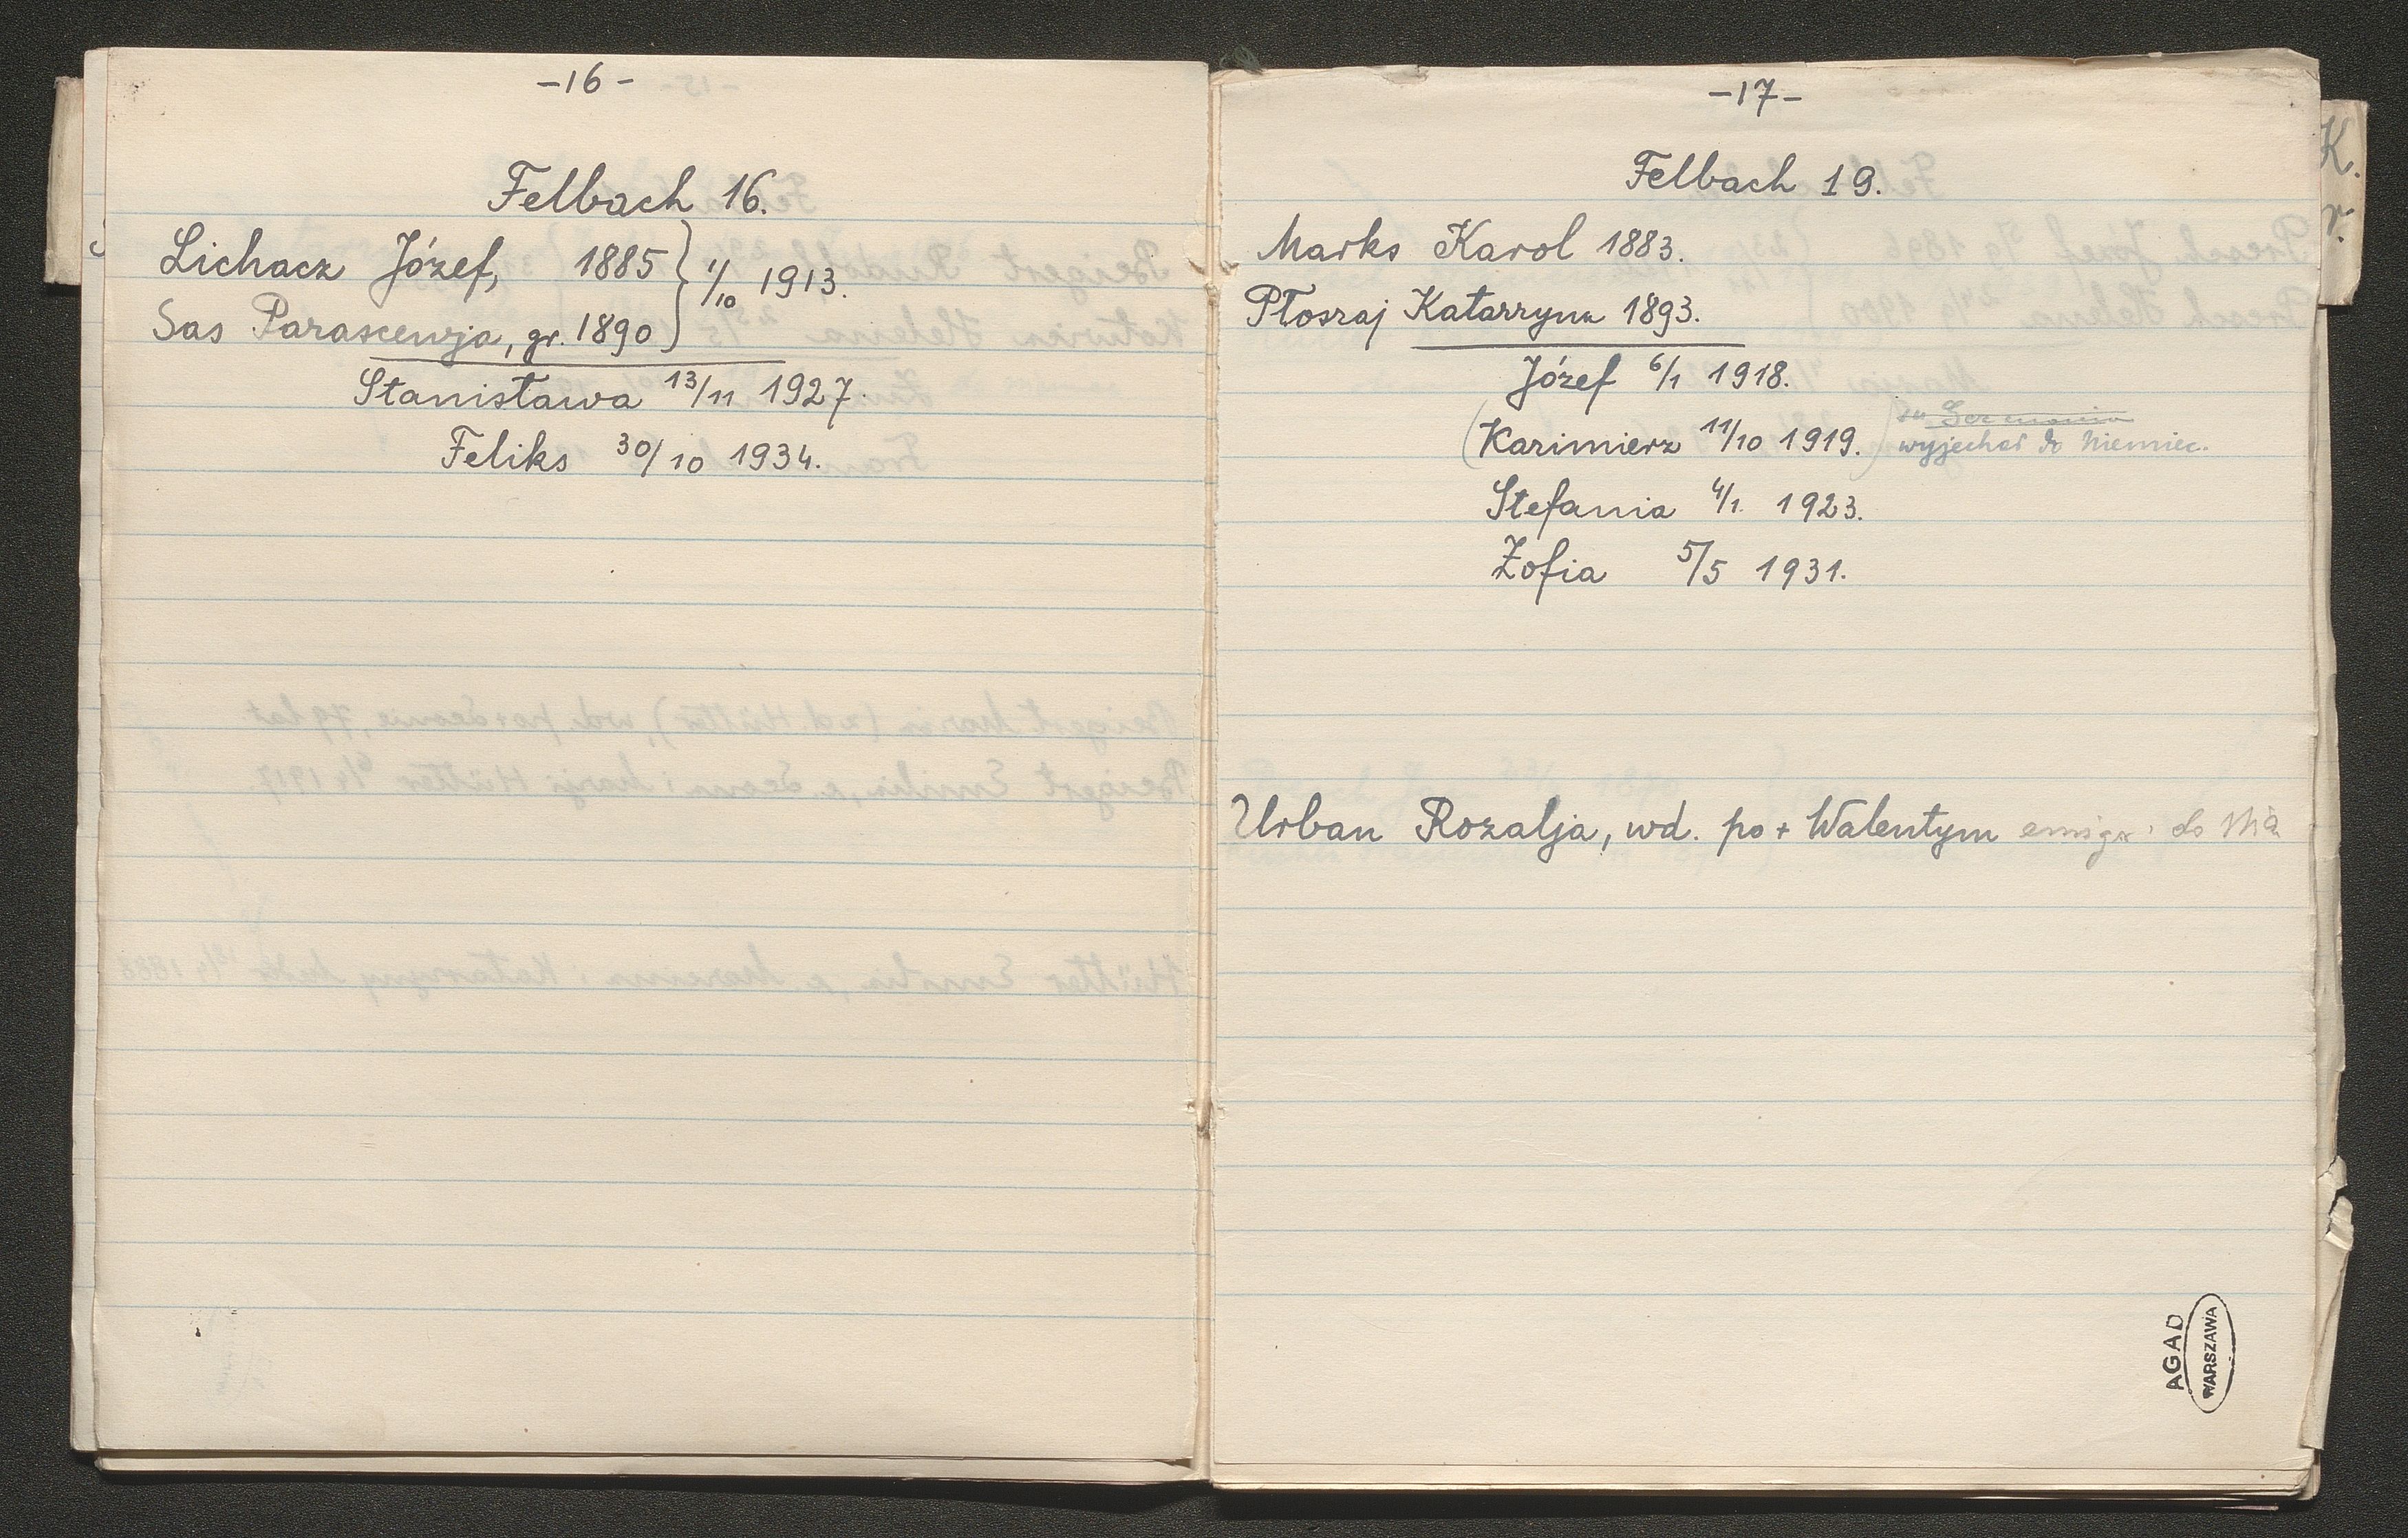 -16-
Felbach 16.
Lichacz Józef, 1885 } 1/10 1913.
Sas Parascewja, gr. 1890
Stanisława 13/11 1927.
Feliks 30/10 1934.
-17-
Felbach 19.
Marks Karol 1883.
Płoszaj Katarzyna 1893.
Józef 6/1 1918.
(Kazimierz 11/10 1919.) wyjechał do Niemiec.
Stefania 4/1 1923.
Zofia 5/5 1931.
Urban Rozalja, wd. po + Walentym emigr. do
K.
r.
AGAD
WARSZAWA